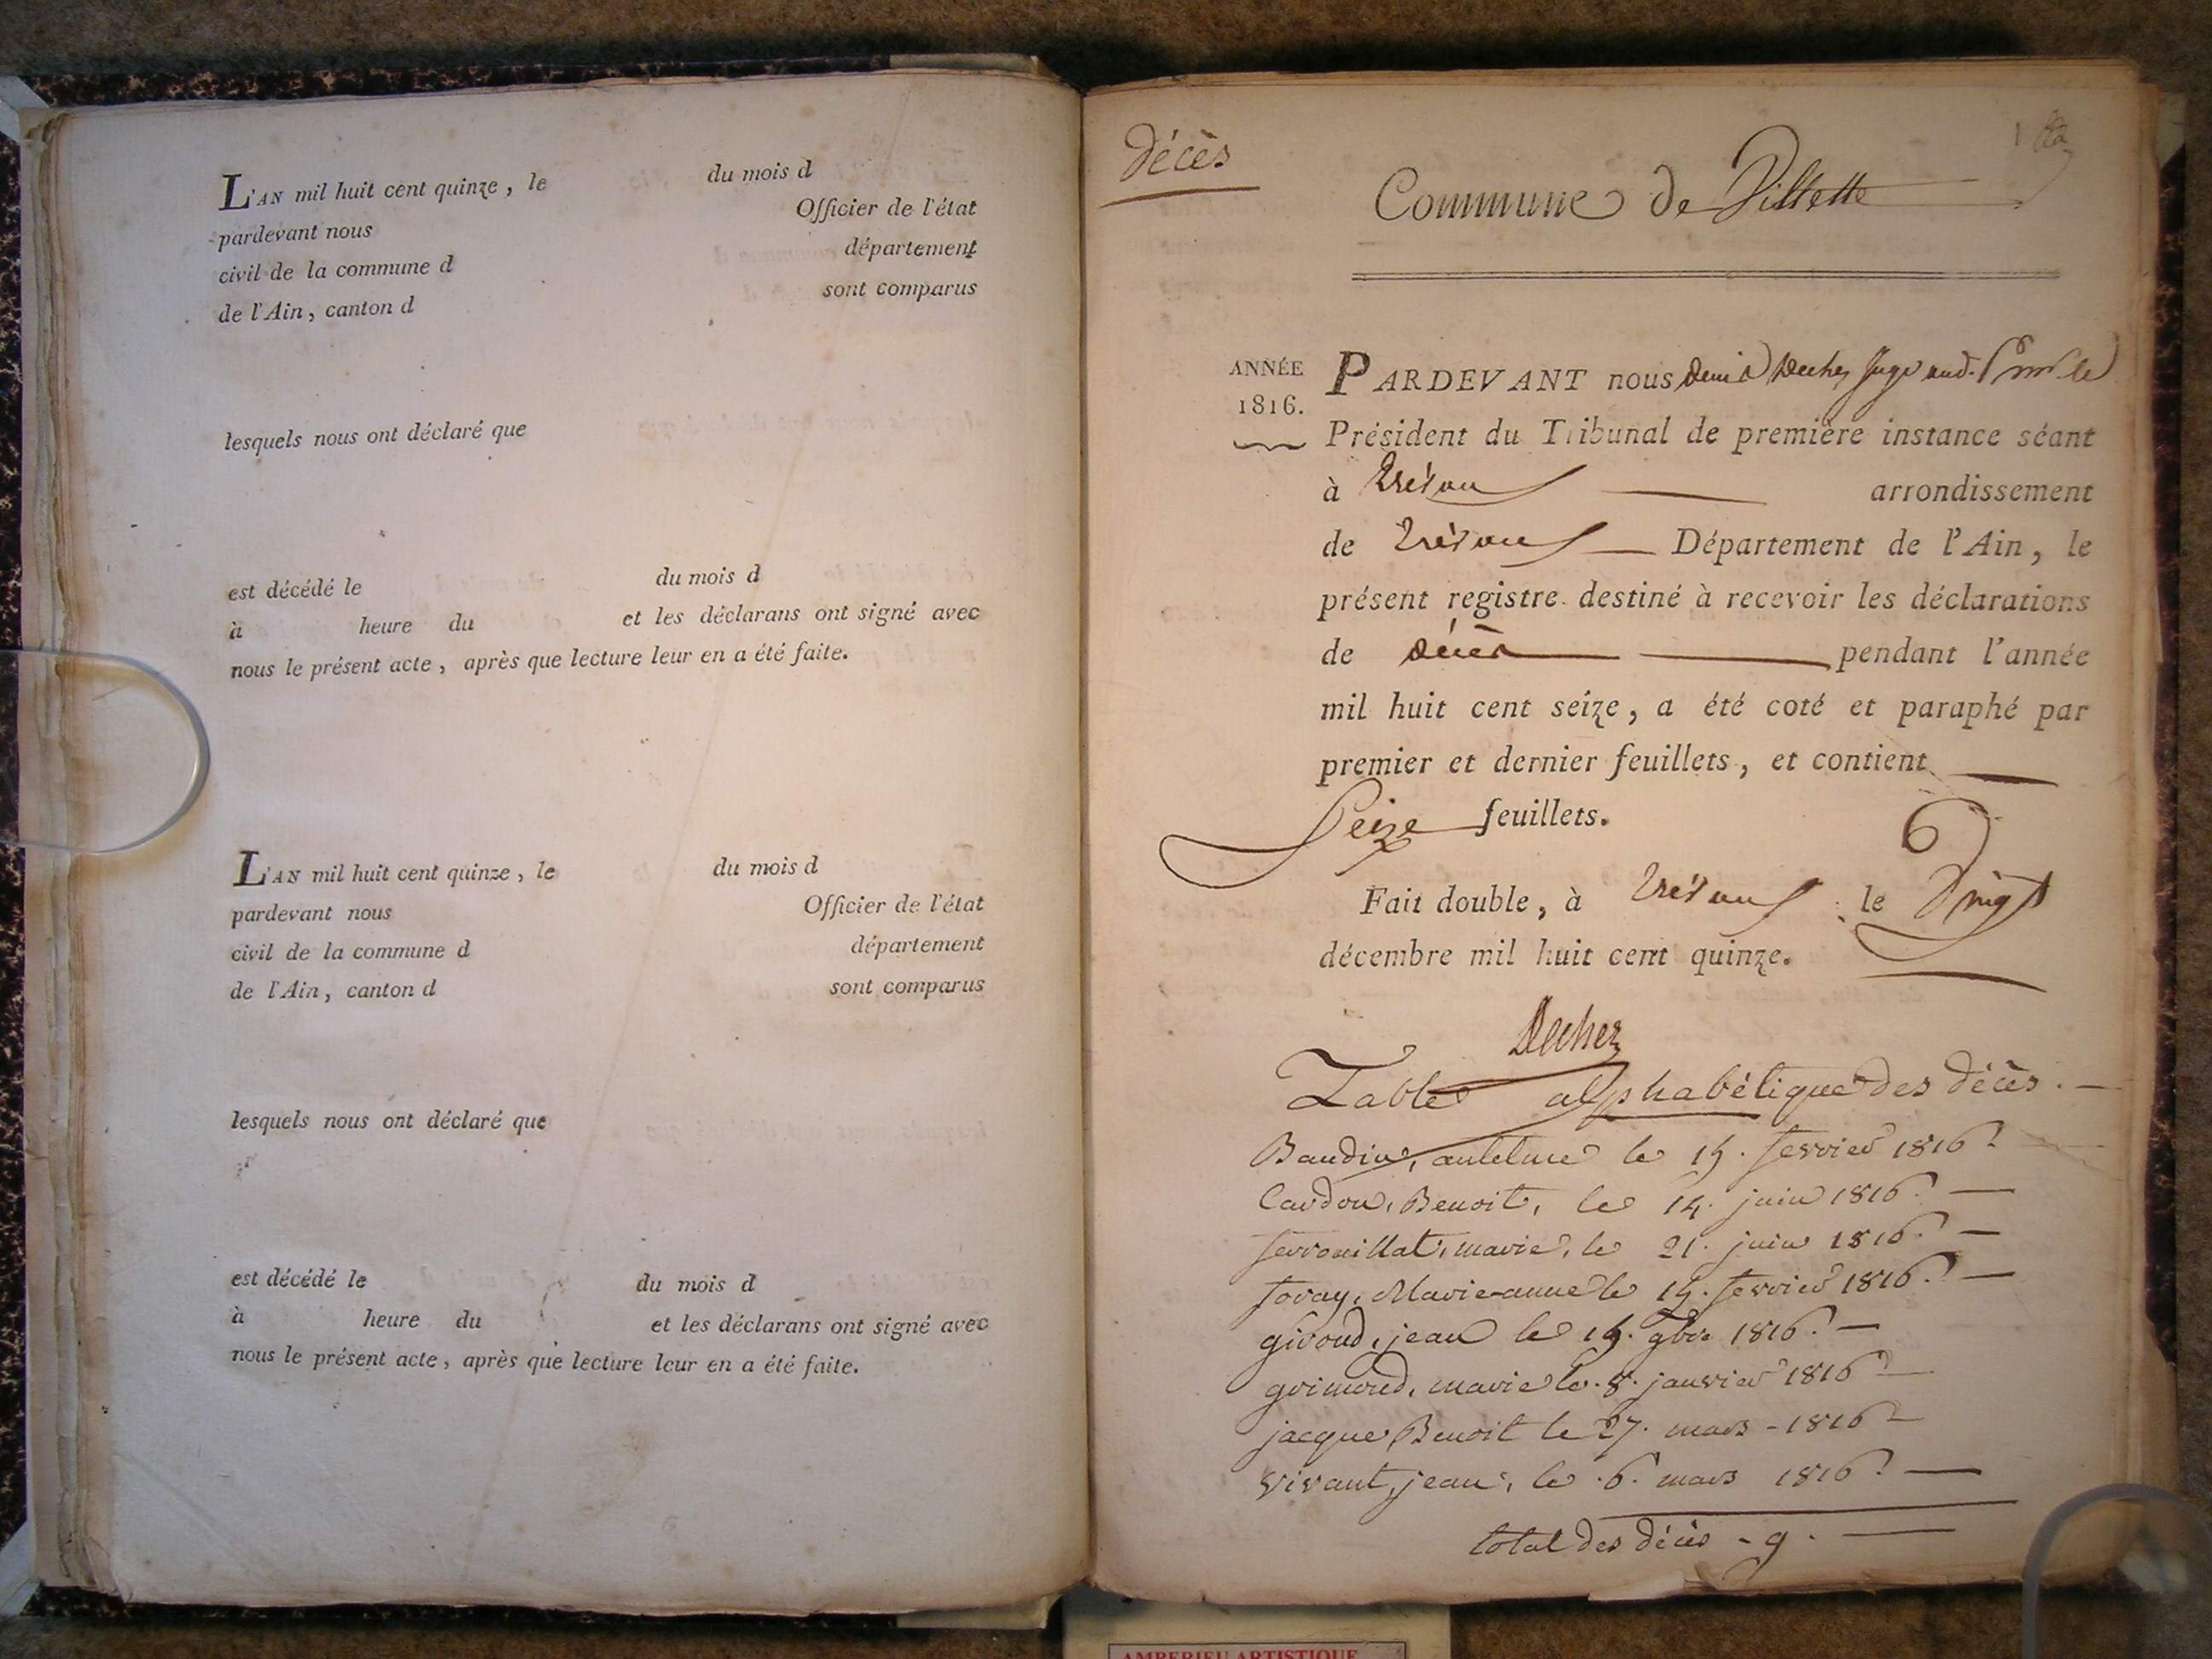 L'AN mil huit cent quinze, le du mois d
pardevant nous Officier de l'état
civil de la commune d département
de l'Ain, canton d sont comparus
lesquels nous ont déclaré que
est décédé le du mois d
à heure du et les déclarans ont signé avec
nous le présent acte, après que lecture leur en a été faite.
L'AN mil huit cent quinze, le du mois d
pardevant nous Officier de l'état
civil de la commune d département
de l'Ain, canton d sont comparus
lesquels nous ont déclaré que
est décédé le du mois d
à heure du et les déclarans ont signé avec
nous le présent acte, après que lecture leur en a été faite.
décès
1
Commune de Villette
ANNÉE
1816.
PARDEVANT nous denis Dechez Juge aud. pour le
Président du Tribunal de première instance séant
à Trévoux arrondissement
de Trévoux Département de l'Ain, le
présent registre destiné à recevoir les déclarations
de décès pendant l'année
mil huit cent seize, a été coté et paraphé par
premier et dernier feuillets, et contient
Seize feuillets.
Fait double, à Trévoux le Vingt
décembre mil huit cent quinze.
Dechez
Table alphabétique des décès.
Baudin, antelme le 15. fevrier 1816.
Cardon, Benoit, le 14. juin 1816.
ferrouillat, marie, le 21. juin 1816.
foray, Marie-anne le 15. fevrier 1816.
giroud, jean le 15. 9bre 1816.
grimoud, marie le 8. janvier 1816
jacque Benoit le 27. mars - 1816
vivant, jean, le 6. mars 1816.
total des décès - 9.
AMBERIEU ARTISTIQUE